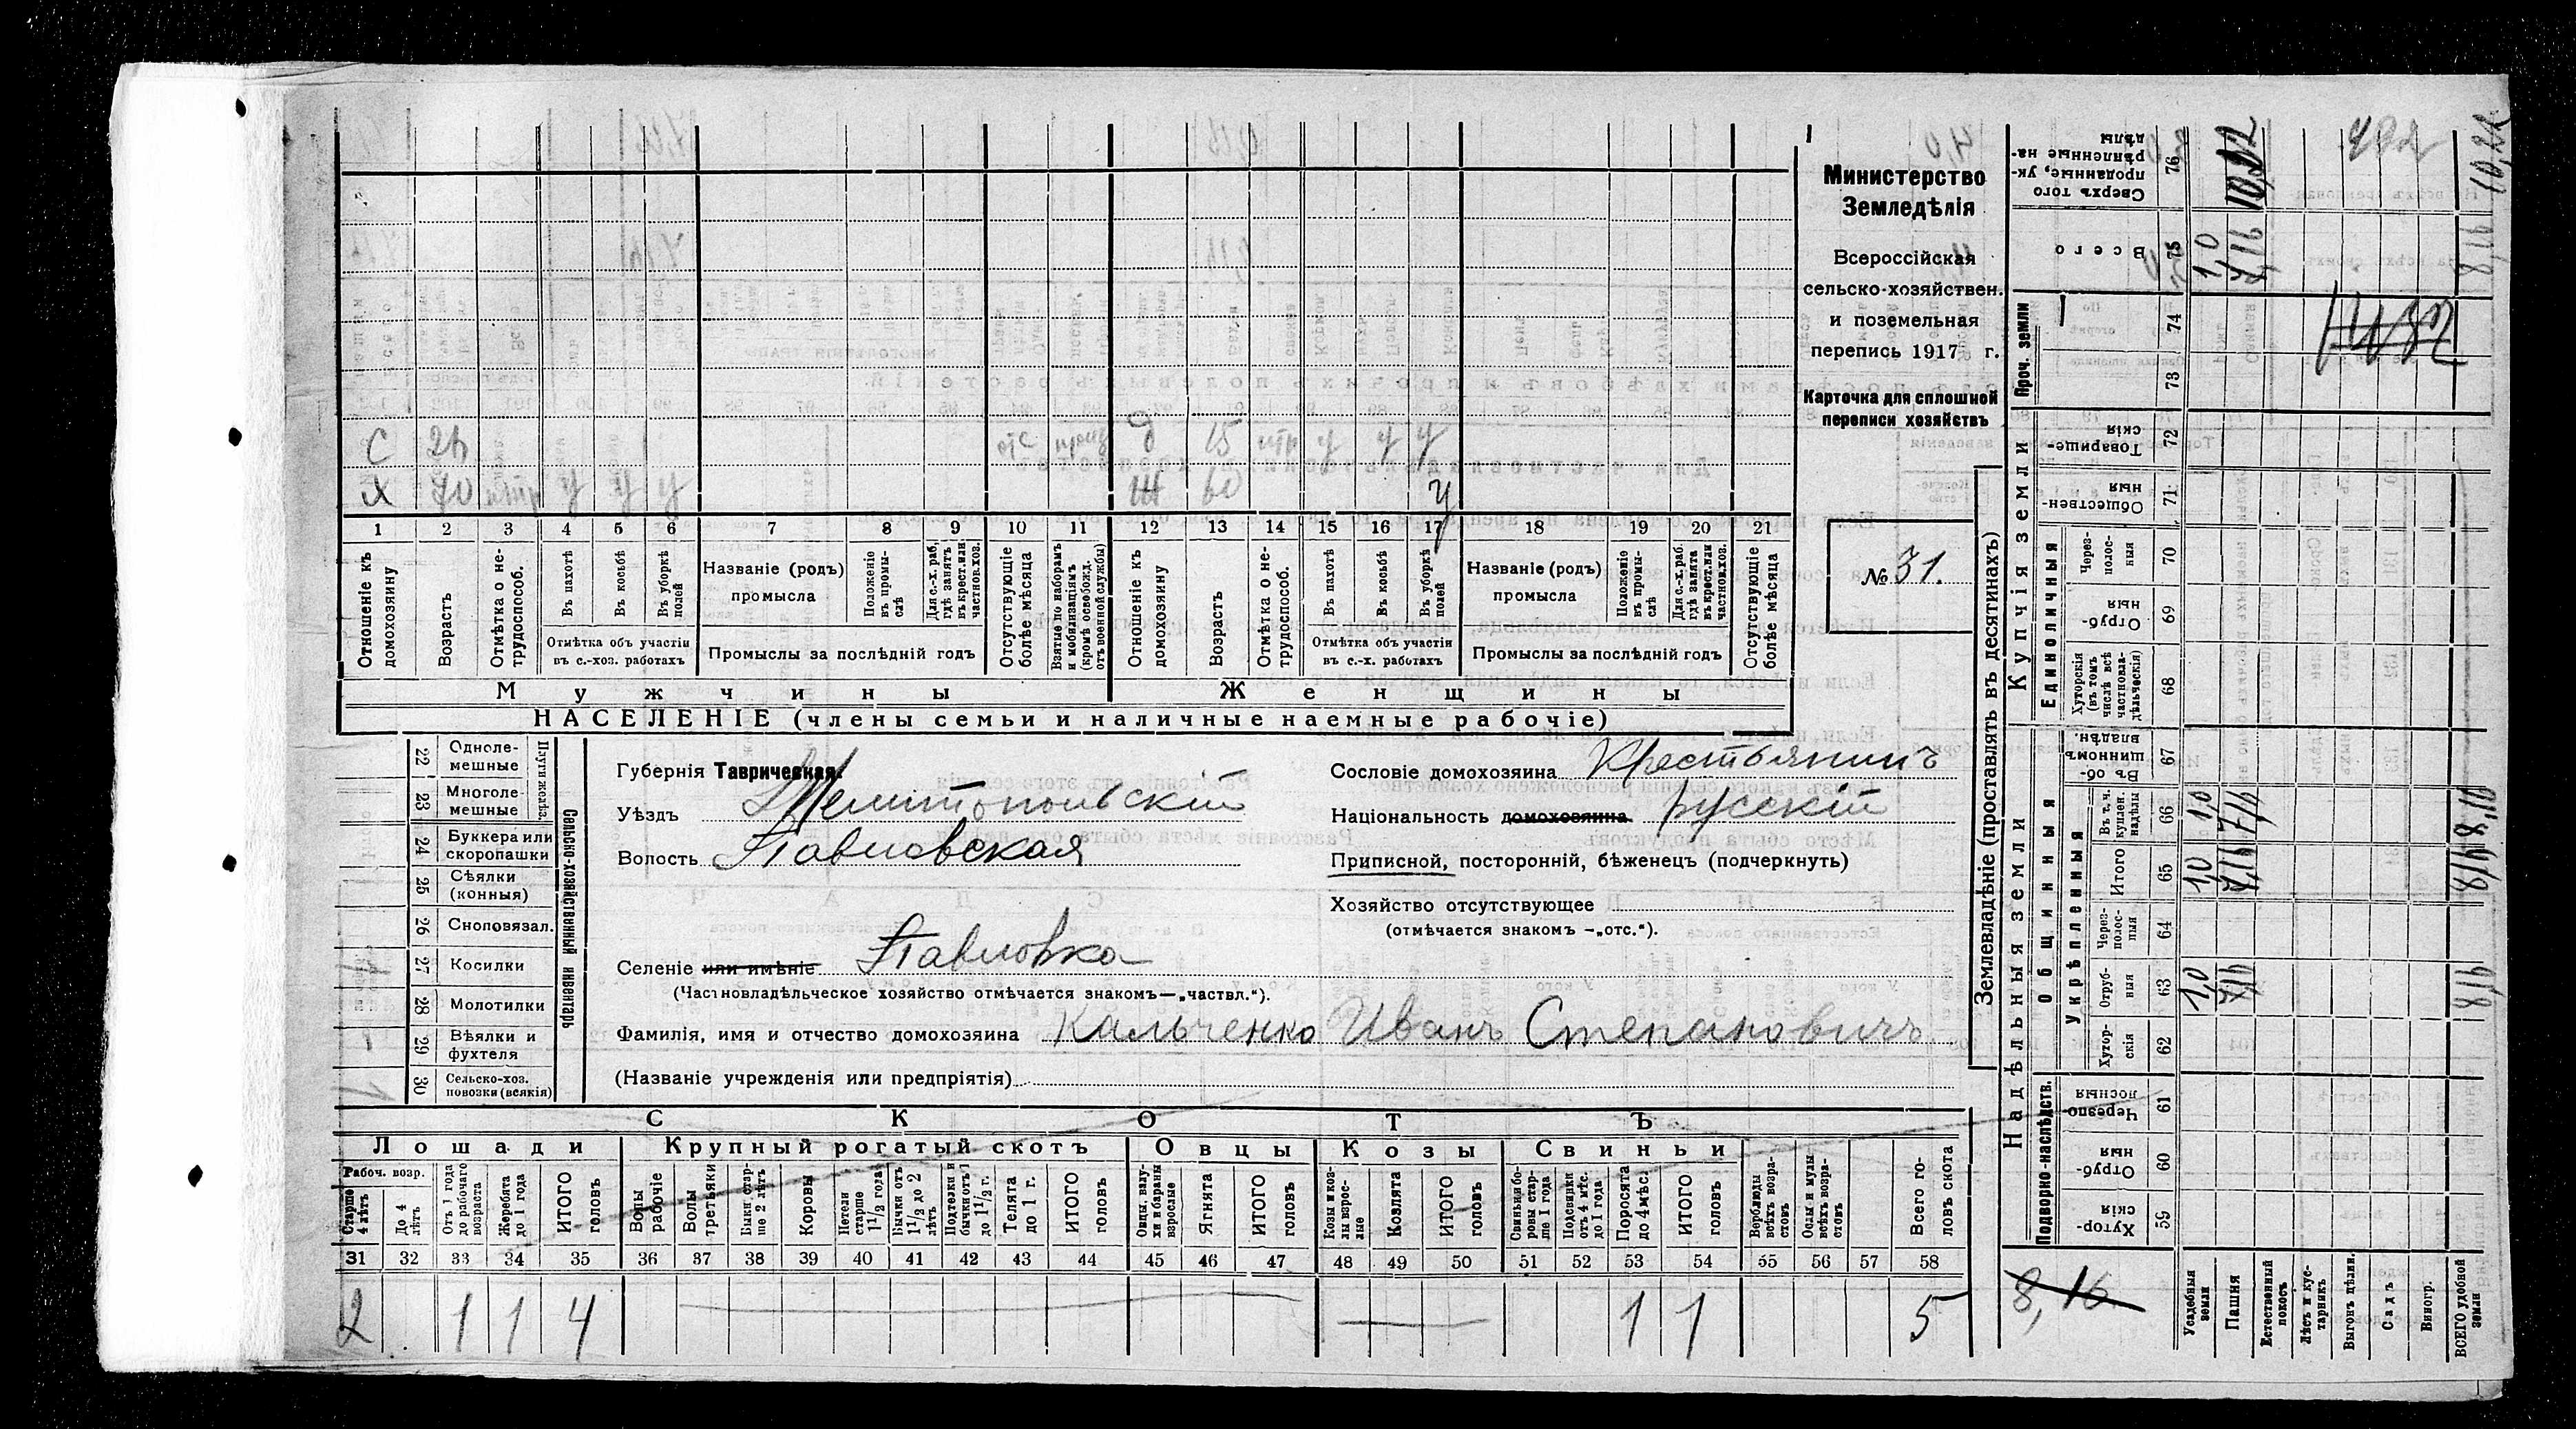 Министерство
Земледѣлія
Всероссійская
сельско-хозяйствен.
и поземельная
перепись 1917 г.
Карточка для сплошной
переписи хозяйствъ
№ 31.
С 26 отс 9 15 у у у
Х 70 у у у Ж 60 у
1 2 3 4 5 6 7 8 9 10 11 12 13 14 15 16 17 18 19 20 21
Отношеніе къ домохозяину
Возрастъ
Отмѣтка о не-трудоспособ.
Въ пахотѣ
Въ косьбѣ
Въ уборкѣ полей
Отмѣтка объ участіи
въ с.-хоз. работахъ
Названіе (родъ)
промысла
Положеніе въ промы-слѣ
Для с.-х. раб. гдѣ занятъ въ крест. или частнов. хоз.
Промыслы за послѣдній годъ
Отсутствующіе болѣе мѣсяца
Взятые по наборамъ и мобилизаціямъ (кромѣ освобожд. отъ военной службы)
Отношеніе къ домохозяину
Возрастъ
Отмѣтка о не-трудоспособ.
Въ пахотѣ
Въ косьбѣ
Въ уборкѣ полей
Отмѣтка объ участіи
въ с.-х. работахъ
Названіе (родъ)
промысла
Положеніе въ промы-слѣ
Для с.-х. раб. гдѣ занята въ крест. или частнов. хоз.
Промыслы за послѣдній годъ
Отсутствующіе болѣе мѣсяца
Мужчины Женщины
НАСЕЛЕНІЕ (члены семьи и наличные наемные рабочіе)
22 Одноле-мешные
23 Многоле-мешные
Плуги желѣз.
24 Буккера или скоропашки
25 Сѣялки (конныя)
26 Сноповязал.
27 Косилки
28 Молотилки
29 Вѣялки и фухтеля
30 Сельско-хоз. повозки (всякія)
1
Сельско-хозяйственный инвентарь
Губернія Таврическая.
Уѣздъ Мелитопольскій
Волость Павловская
Селеніе или имѣніе Павловка
(Частновладѣльческое хозяйство отмѣчается знакомъ—„частвл.“).
Фамилія, имя и отчество домохозяина Кальченко Иванъ Степановичъ
(Названіе учрежденія или предпріятія)
Сословіе домохозяина Крестьянинъ
Національность домохозяина русскій
Приписной, посторонній, бѣженецъ (подчеркнуть)
Хозяйство отсутствующее
(отмѣчается знакомъ —„отс.“).
СКОТЪ
Лошади Крупный рогатый скотъ Овцы Козы Свиньи
Рабоч. возр.
Старше 4 лѣтъ
До 4 лѣтъ
Отъ 1 года до рабочаго возраста
Жеребята до 1 года
ИТОГО головъ
Волы рабочіе
Волы третьяки
Быки стар-ше 2 лѣтъ
Коровы
Нетели старше 1 1/2 года
Бычки отъ 1 1/2 до 2 лѣтъ
Подтелки и бычки отъ 1 до 1 1/2 г.
Телята до 1 г.
ИТОГО головъ
Овцы, валу-хи и бараны взрослые
Ягнята
ИТОГО головъ
Козы и коз-лы взрос-лые
Козлята
ИТОГО головъ
Свиньи и бо-ровы стар-ше 1 года
Подсвинки отъ 4 мѣс. до 1 года
Поросята до 4 мѣс.
ИТОГО головъ
Верблюды всѣхъ возра-стовъ
Ослы и мулы всѣхъ возра-стовъ
Всего го-ловъ скота
31 32 33 34 35 36 37 38 39 40 41 42 43 44 45 46 47 48 49 50 51 52 53 54 55 56 57 58
2 1 1 4 1 1 5
Землевладѣніе (проставлять въ десятинахъ)
Проч. земли
Купчія земли
Единоличныя
Надѣльныя земли
Общинныя
Укрѣпленныя
Подворно-наслѣдств.
Сверхъ того проданные, ук-рѣпленные на-дѣлы 76 10,22
Всего 75 1,0 7,16 8,16
74
73
Товарище-скія 72
Обществен-ныя 71
Через-полос-ныя 70
Отруб-ныя 69
Хуторскія (въ томъ числѣ всѣ частновла-дѣльческія) 68
Въ об-щинномъ владѣн. 67
Въ т. ч. куплен. надѣлы 66 1,0 7,16 8,16
Итого 65 1,0 7,16 8,16
Через-полос-ныя 64
Отруб-ныя 63 1,0 7,16 8,16
Хутор-скія 62
Черезпо-лосныя 61
Отруб-ныя 60
Хутор-скія 59
8,16
Усадебныя земли
Пашня
Естественный покосъ
Лѣсъ и кус-тарникъ
Выгонъ цѣлин.
Садъ
Виногр.
ВСЕГО удобной земли
10,22